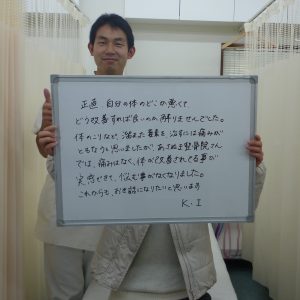 正直 自分の体のどこが悪くて
どう改善すれば良いのか解りませんでした。
体のこりなど、溜まった毒素を治すには痛みが
ともなうと思いましたが あさぬま整骨院さん
では、痛みはなく、体が改善されてる事が
実感できて、悩む事がなくなりました。
これからも、お世話になりたいと思います
K.I